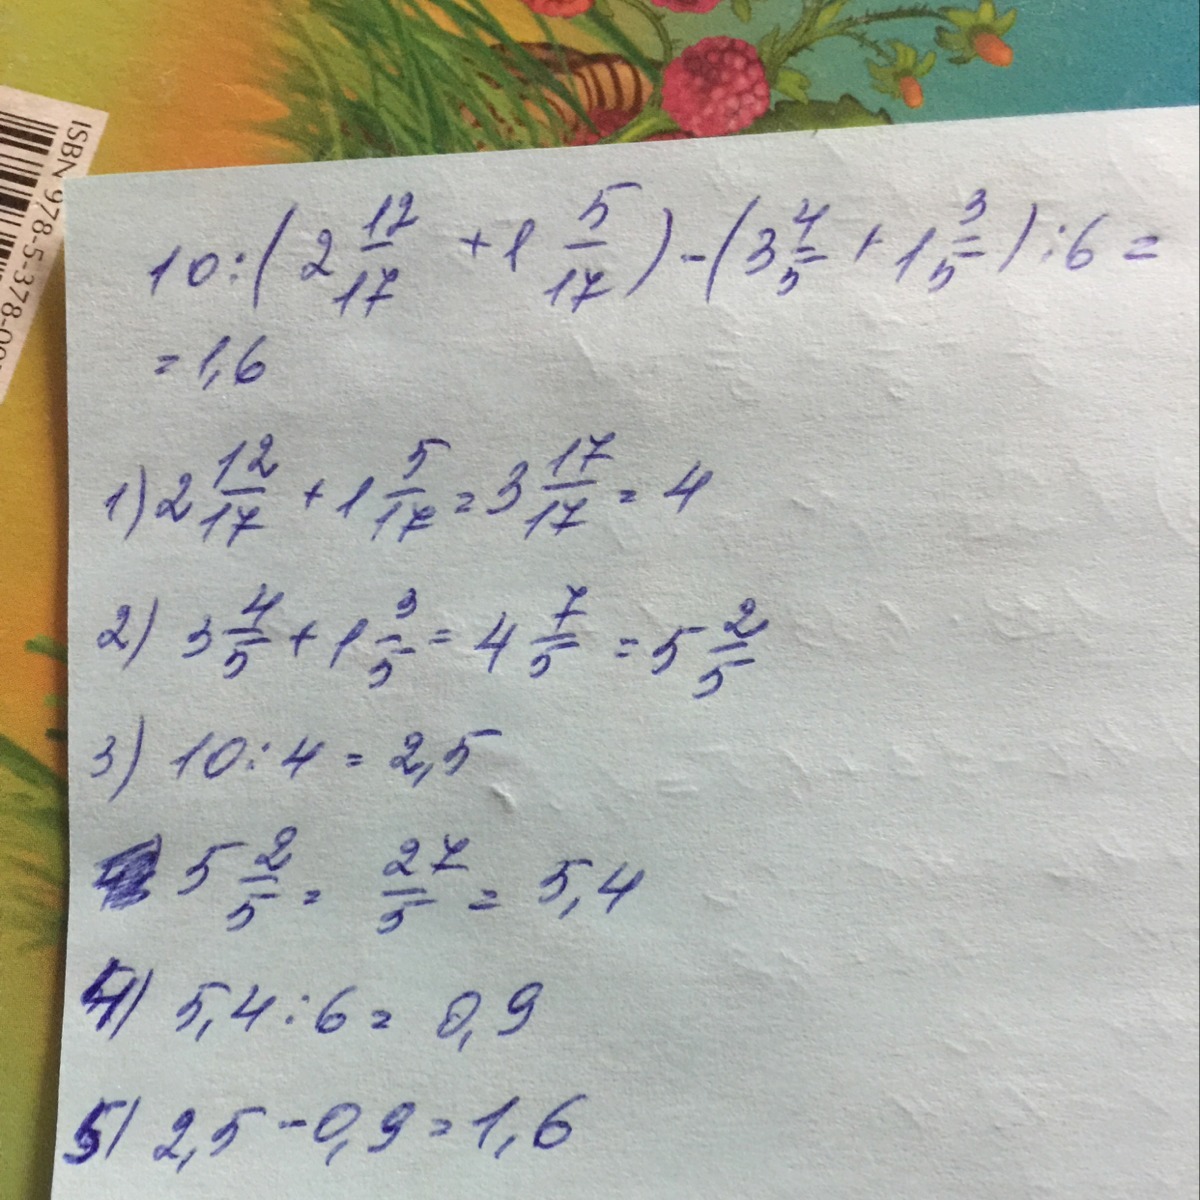 ISBN 978-5-378-00
10:(2 12/17 + 1 5/17) - (3 4/5 + 1 3/5) : 6 =
= 1,6
1) 2 12/17 + 1 5/17 = 3 17/17 = 4
2) 3 4/5 + 1 3/5 = 4 7/5 = 5 2/5
3) 10:4 = 2,5
5 2/5 = 27/5 = 5,4
4) 5,4:6 = 0,9
5) 2,5 - 0,9 = 1,6